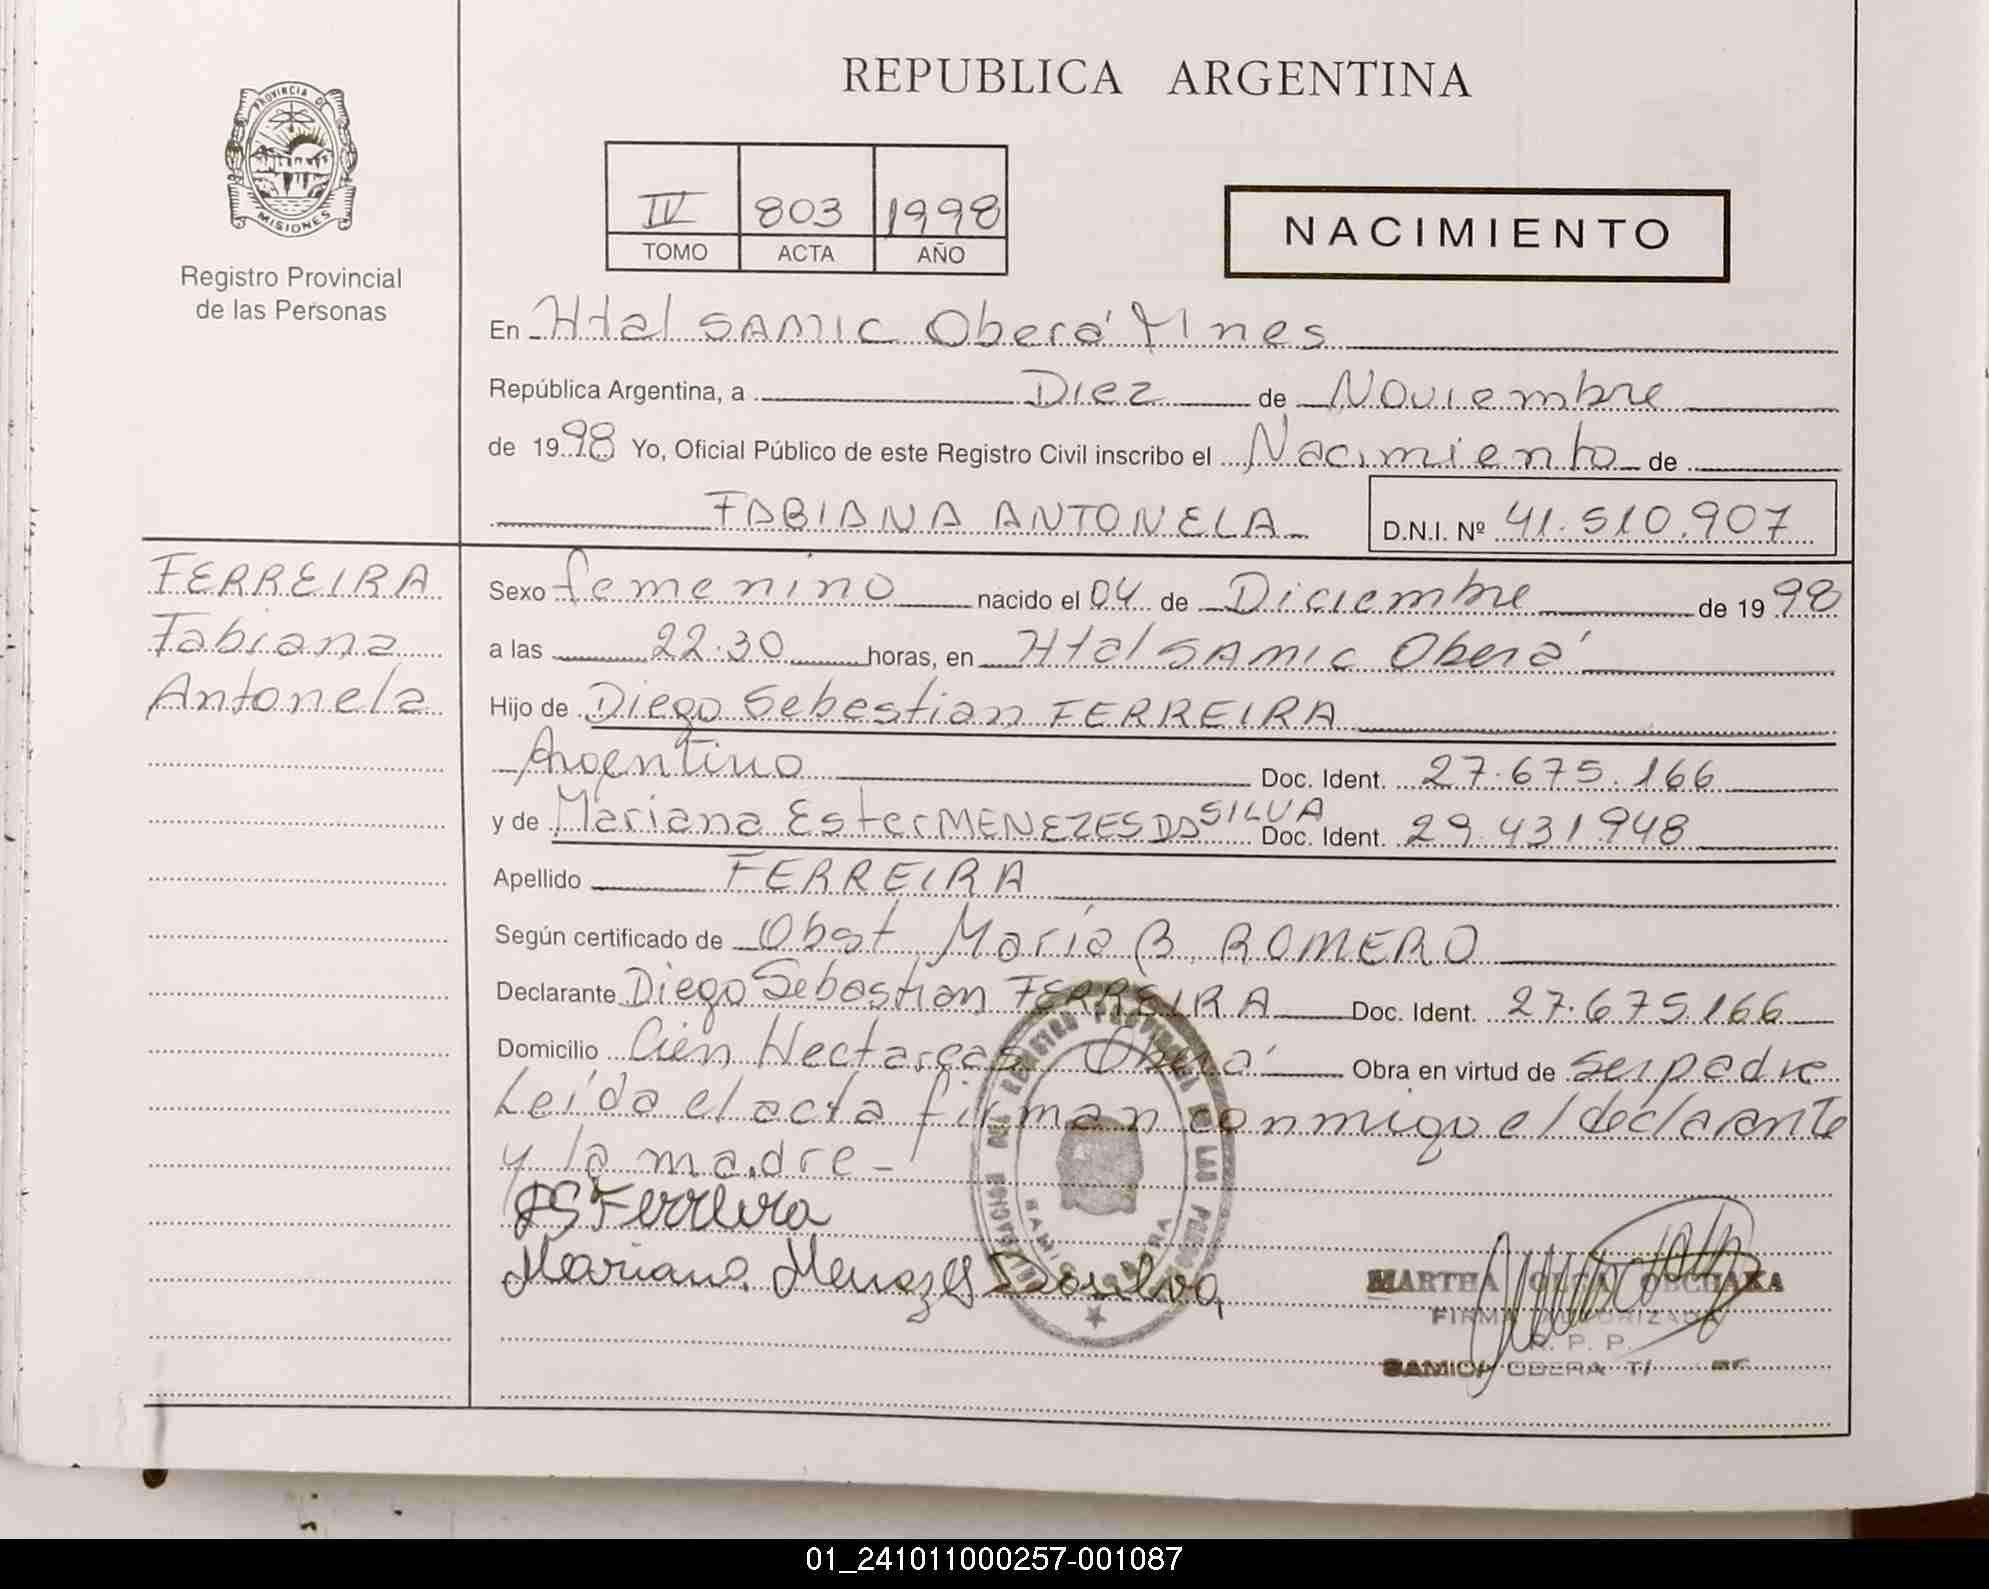 REPUBLICA ARGENTINA
PROVINCIA D
MISIONES
Registro Provincial
de las Personas
IV 803 1998
TOMO ACTA AÑO
NACIMIENTO
En Htal SAMIC Oberá Mnes
República Argentina, a Diez de Noviembre
de 1998 Yo, Oficial Público de este Registro Civil inscribo el Nacimiento de
FABIANA ANTONELA D.N.I. Nº 41.510.907
FERREIRA
Fabiana
Antonela
Sexo femenino nacido el 04 de Diciembre de 1998
a las 22.30 horas, en Htal SAMIC Oberá
Hijo de Diego Sebestian FERREIRA
Argentino Doc. Ident. 27.675.166
y de Mariana Ester MENEZES DA SILVA Doc. Ident. 29.431.948
Apellido FERREIRA
Según certificado de Obst María B. ROMERO
Declarante Diego Sebastian FERREIRA Doc. Ident. 27.675.166
Domicilio Cien Hectareas Oberá Obra en virtud de ser padre
Leída el acta firman conmigo el declarante
y la madre -
DS Ferreira
Mariana Menezes Dasilva
MARTHA OLGA
FIRMA AUTORIZADA
R. P. P.
SAMIC OBERA
01_241011000257-001087